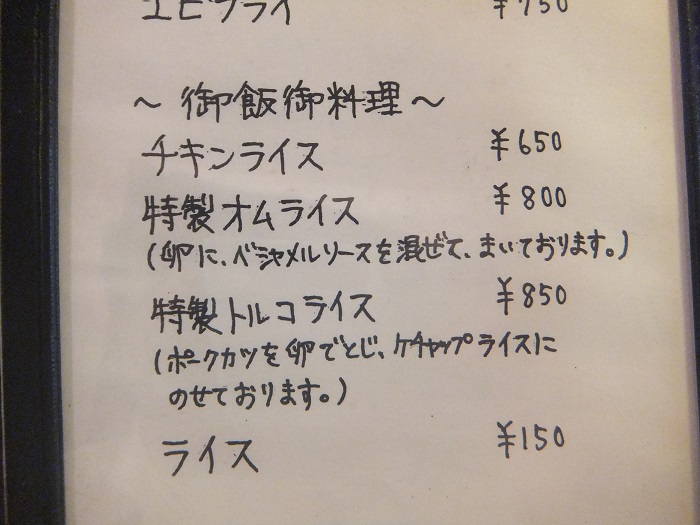 エビフライ ¥750
～ 御飯御料理 ～
チキンライス ¥650
特製オムライス ¥800
(卵に、ベシャメルソースを混ぜて、まいております。)
特製トルコライス ¥850
(ポークカツを卵でとじ、ケチャップライスに
のせております。)
ライス ¥150